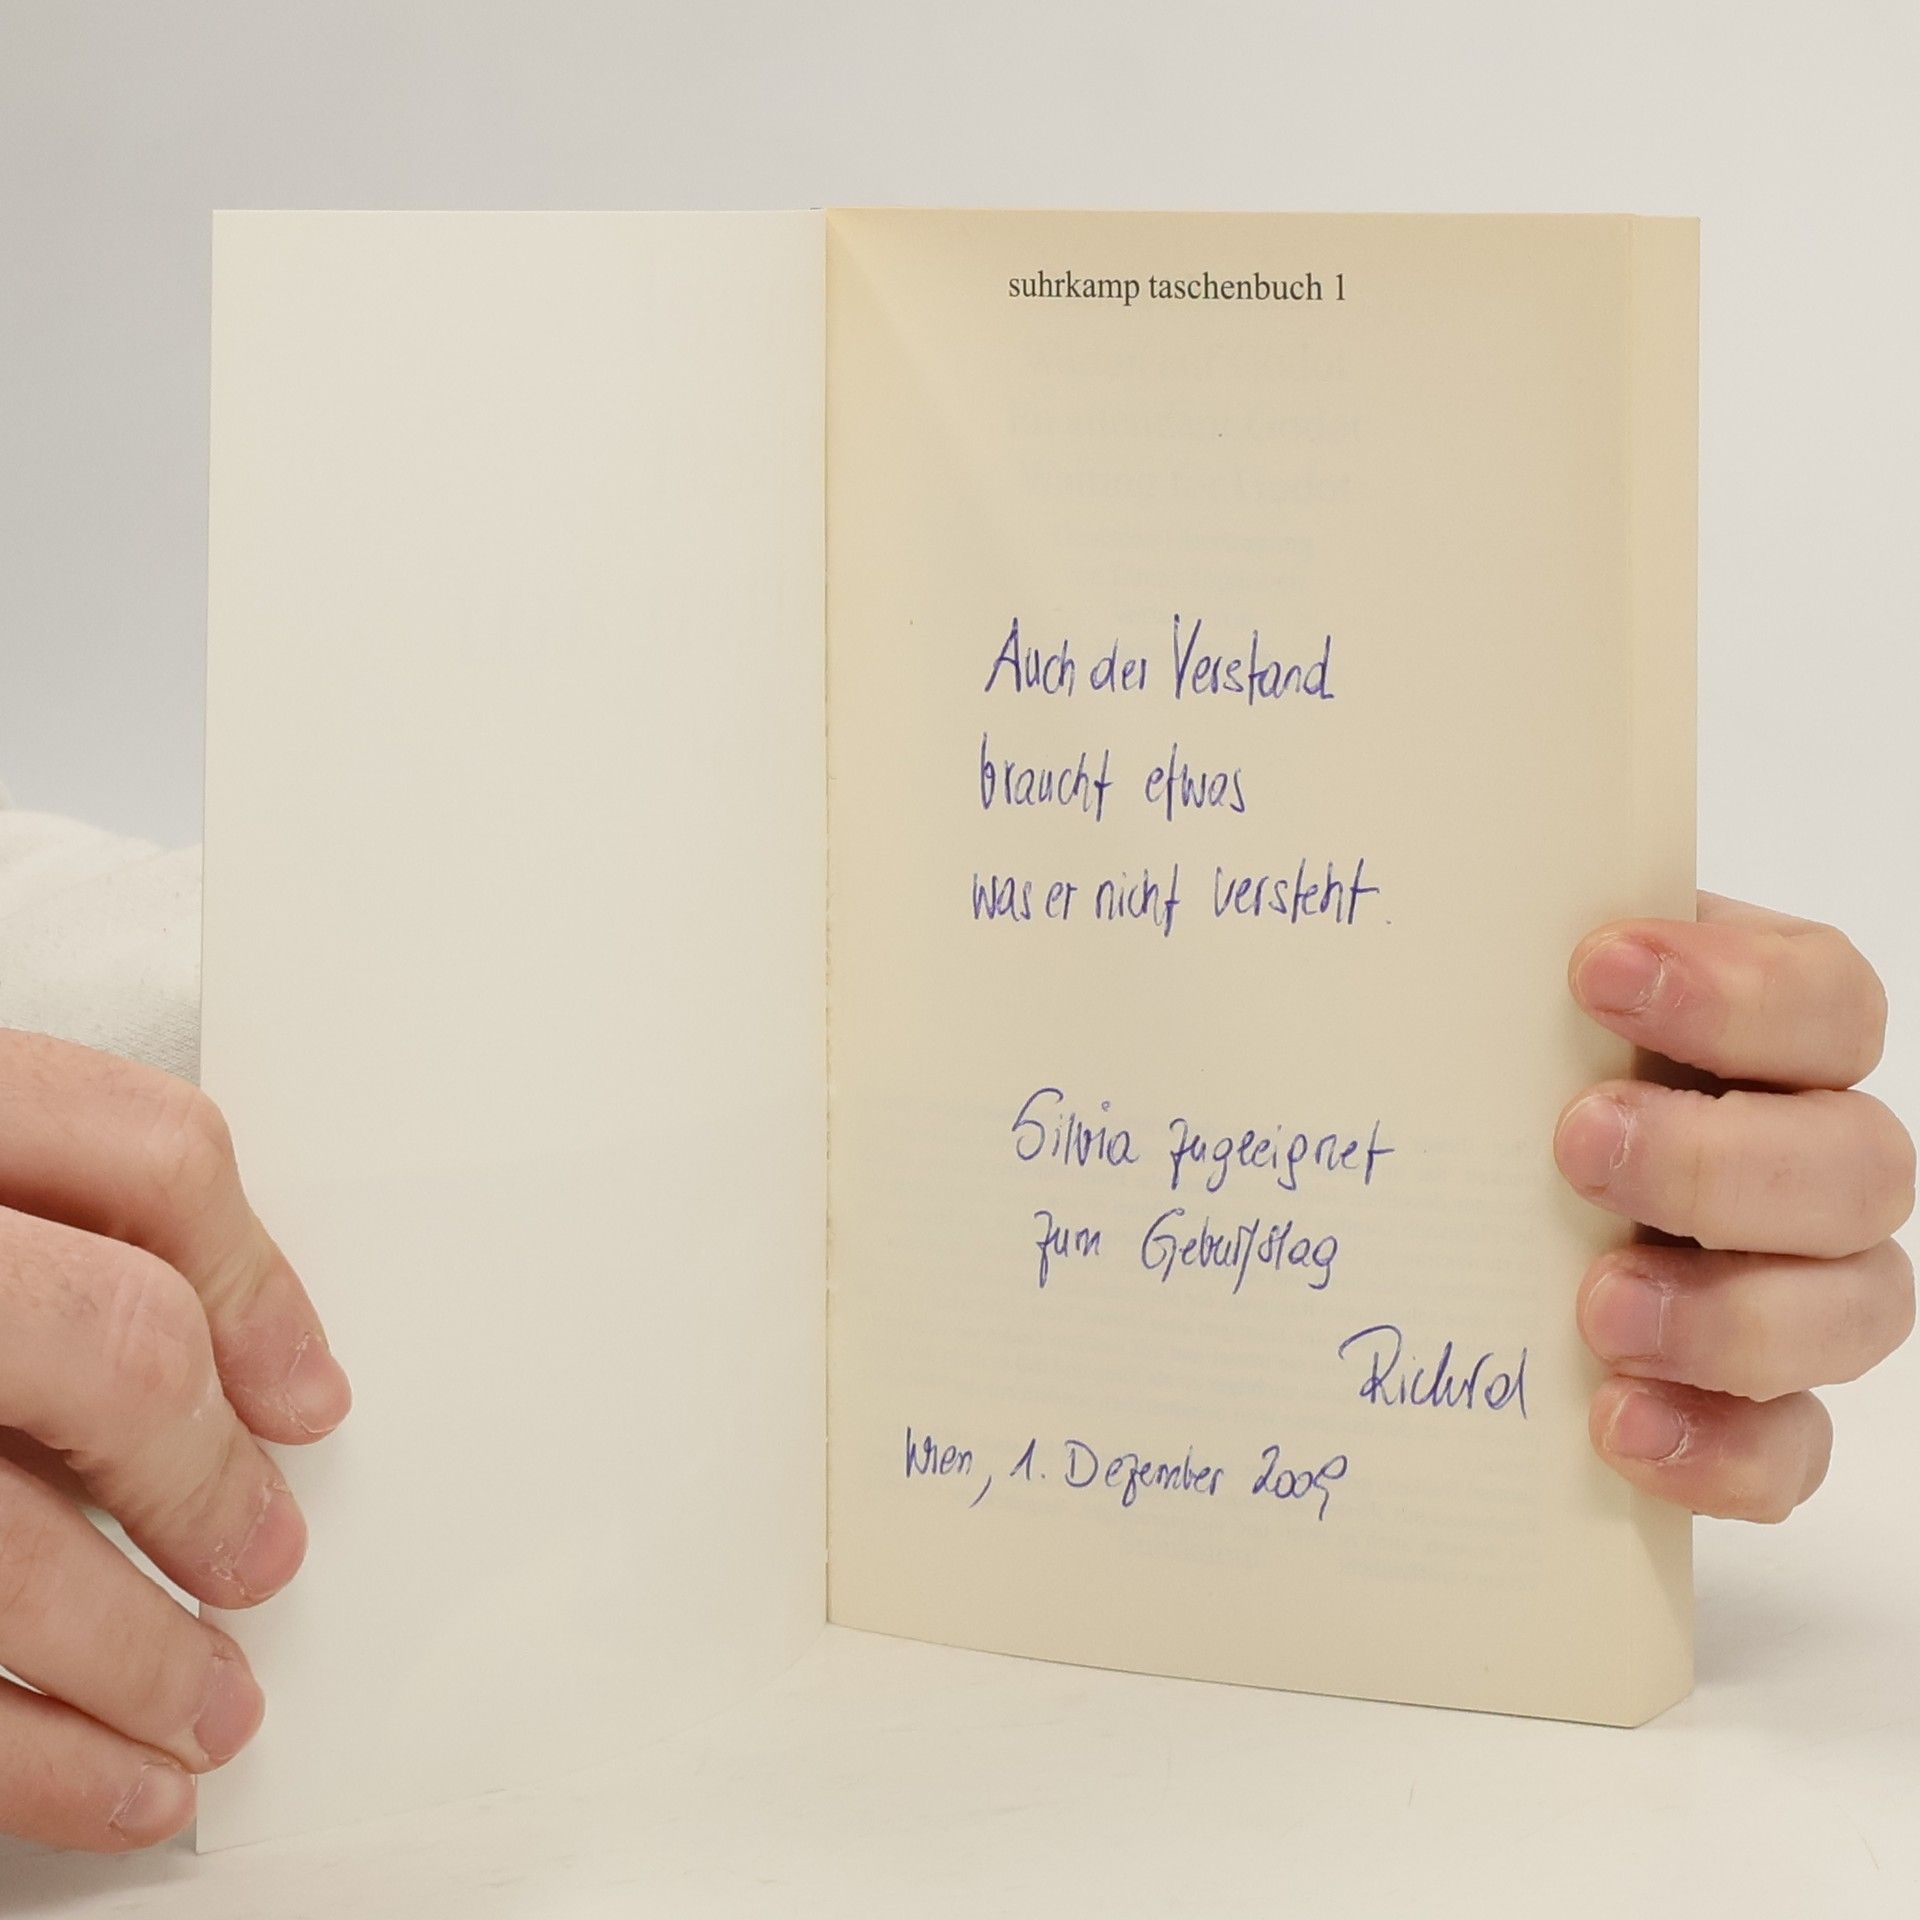 suhrkamp taschenbuch 1
Auch der Verstand
braucht etwas
was er nicht versteht.
Silvia zugeeignet
zum Geburtstag
Richard
Wien, 1. Dezember 2009